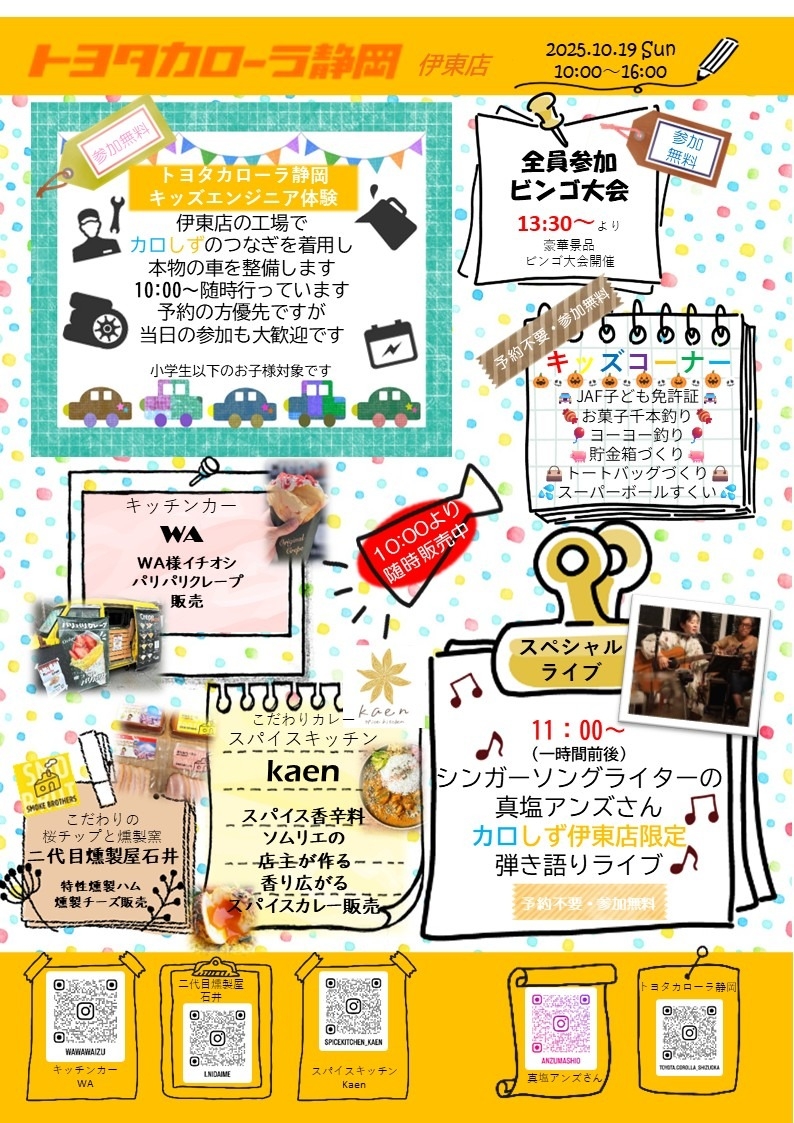 トヨタカローラ静岡 伊東店
2025.10.19 Sun
10:00～16:00
参加無料
トヨタカローラ静岡
キッズエンジニア体験
伊東店の工場で
カロしずのつなぎを着用し
本物の車を整備します
10:00～随時行っています
予約の方優先ですが
当日の参加も大歓迎です
小学生以下のお子様対象です
参加
無料
全員参加
ビンゴ大会
13:30～より
豪華景品
ビンゴ大会開催
予約不要・参加無料
キッズコーナー
JAF子ども免許証
お菓子千本釣り
ヨーヨー釣り
貯金箱づくり
トートバッグづくり
スーパーボールすくい
キッチンカー
WA
WA様イチオシ
パリパリクレープ
販売
Original
Crepe
10:00より
随時販売中
スペシャル
ライブ
11：00～
（一時間前後）
シンガーソングライターの
真塩アンズさん
カロしず伊東店限定
弾き語りライブ
予約不要・参加無料
kaen
こだわりカレー
スパイスキッチン
kaen
スパイス香辛料
ソムリエの
店主が作る
香り広がる
スパイスカレー販売
SMOKE BROTHERS
こだわりの
桜チップと燻製窯
二代目燻製屋石井
特性燻製ハム
燻製チーズ販売
WAWAWAIZU
キッチンカー
WA
二代目燻製屋
石井
I.NIDAIME
SPICEKITCHEN_KAEN
スパイスキッチン
Kaen
ANZUMASHIO
真塩アンズさん
トヨタカローラ静岡
TOYOTA.COROLLA_SHIZUOKA